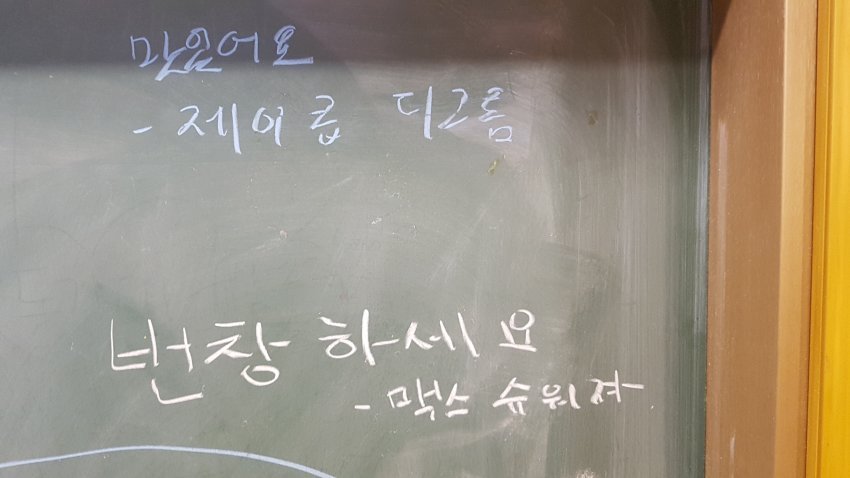 맛있어요
- 제이콥 디그롬
번창 하세요
- 맥스 슈워져